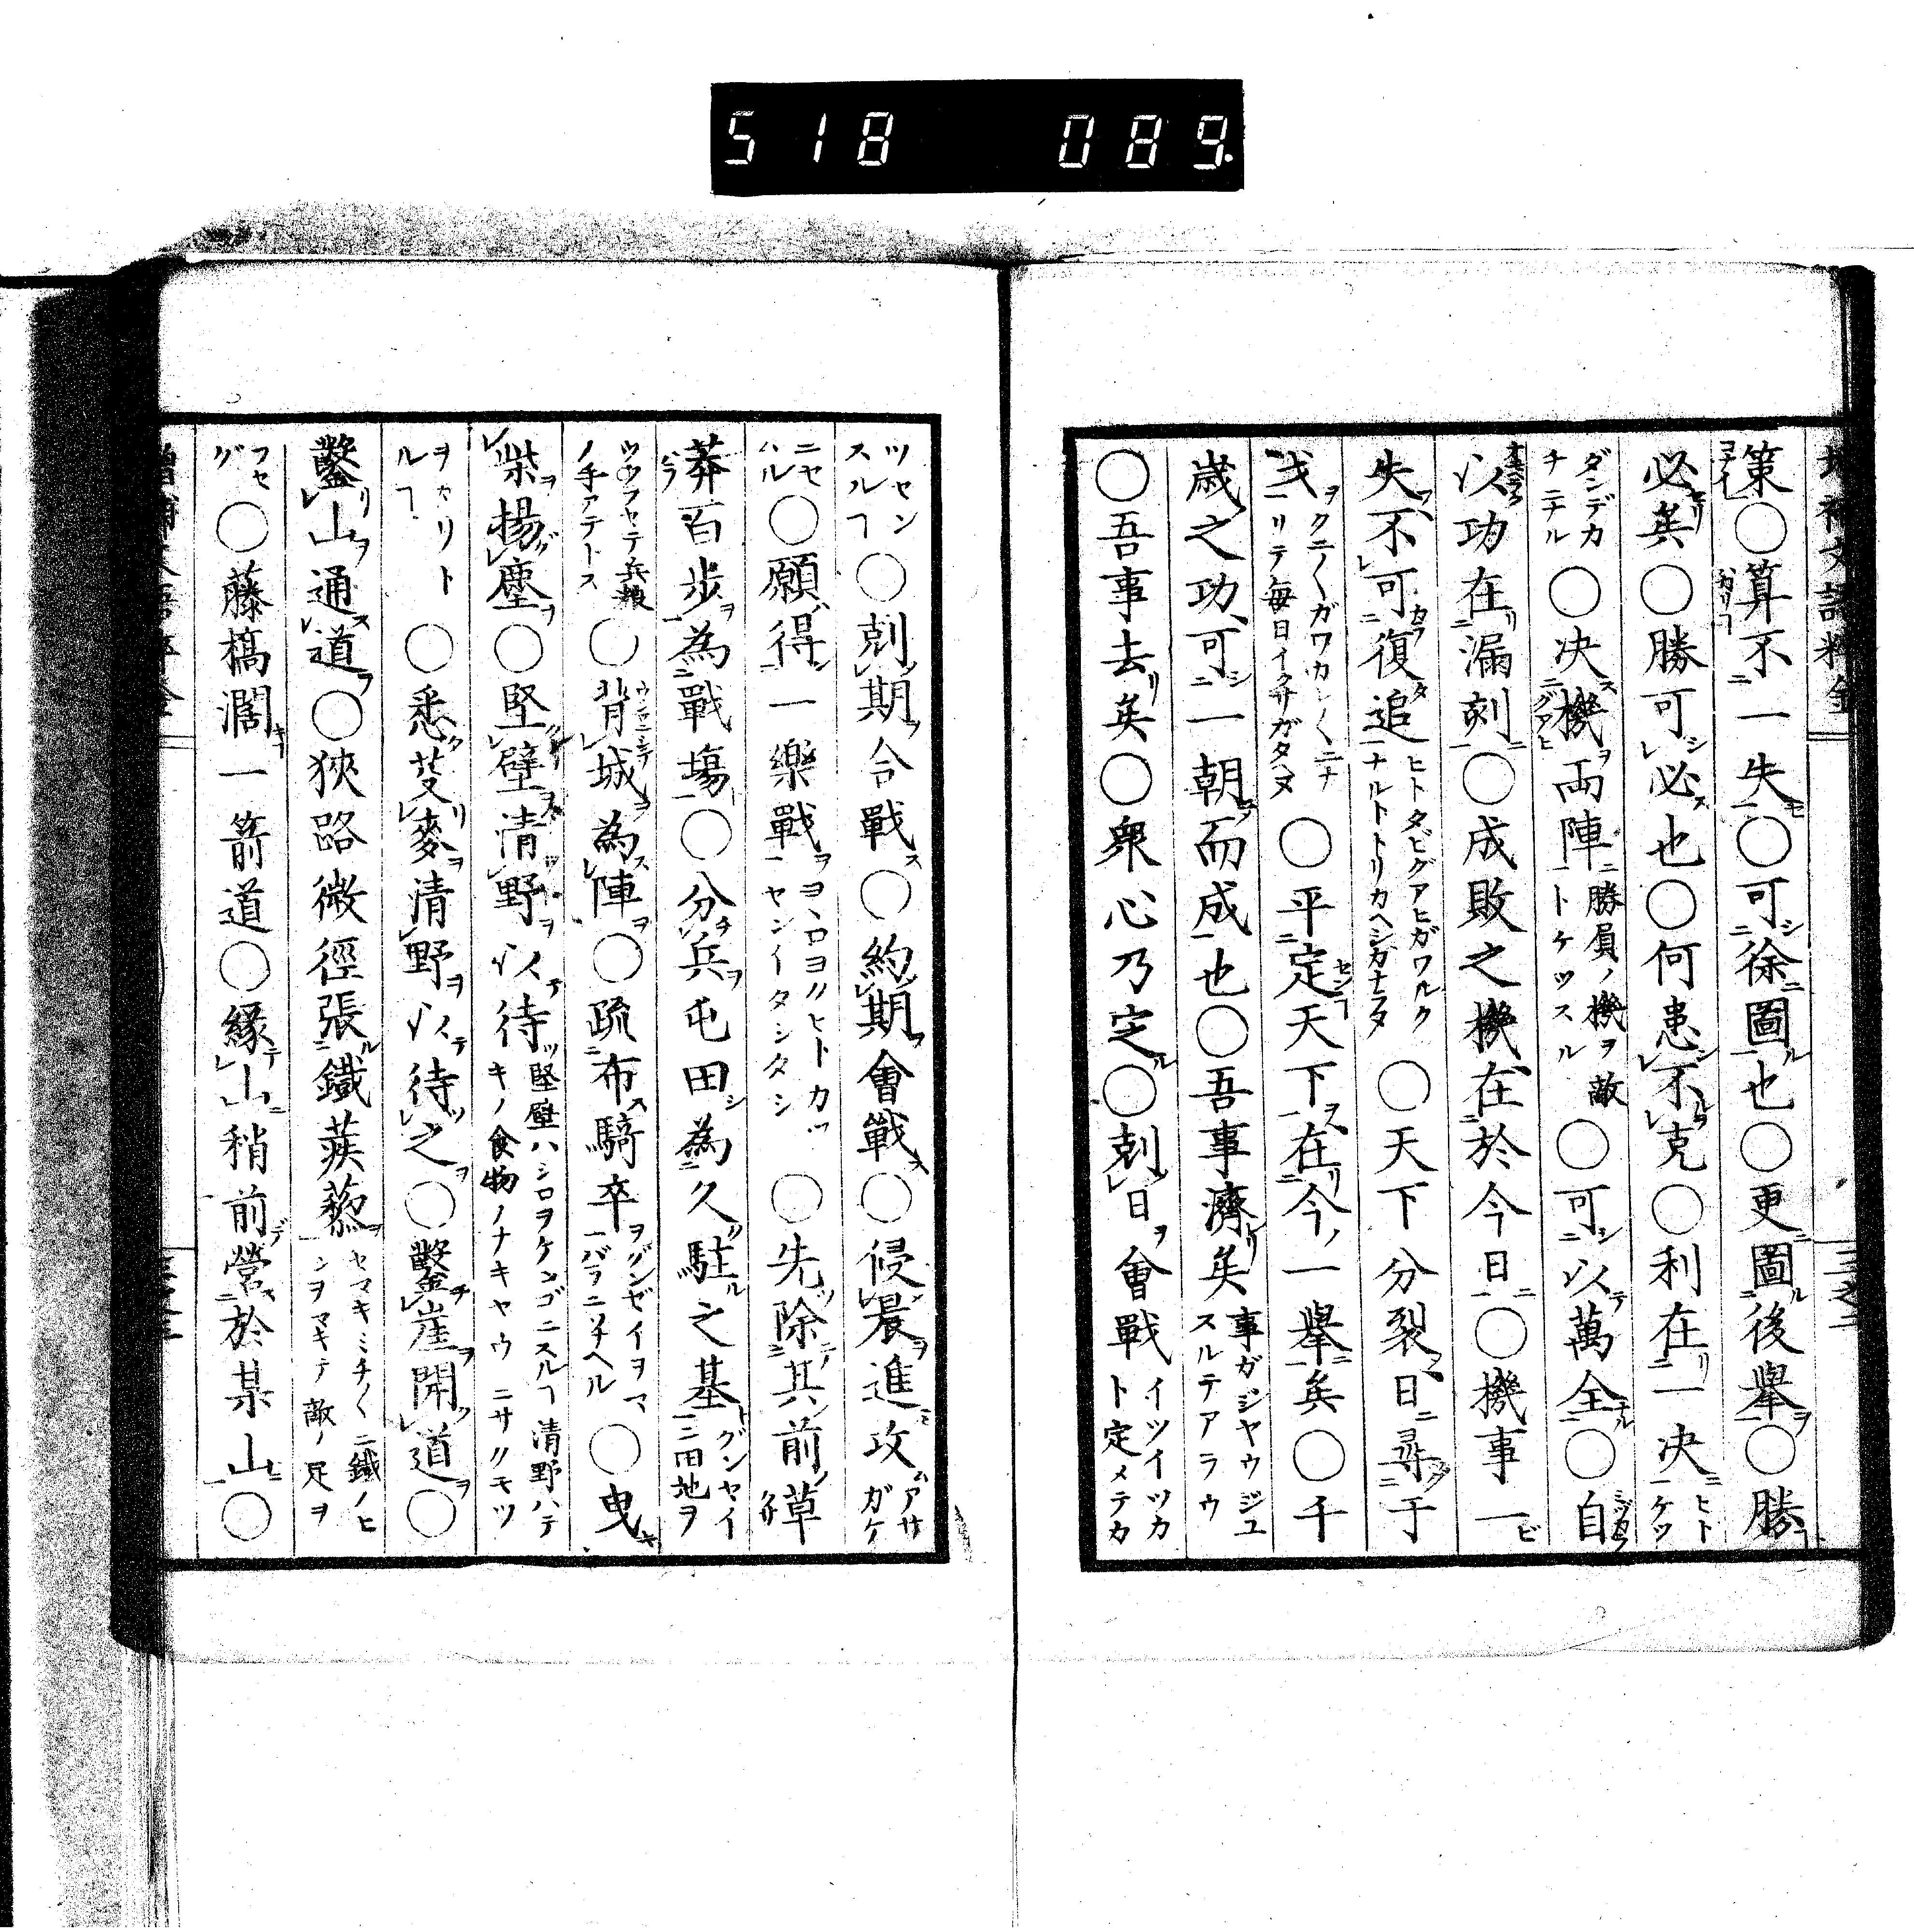 518 089.
策○算不一失○可徐圖也○更圖後擧○勝
必矣○勝可必也○何患不克○利在一决 ヒト ケツ
ダンデカ チニナル ○决機兩陣 勝負ノ機ヲ敵 トケツスル ○可以萬全○自
以功在漏刻○成敗之機在於今日○機事一
失不可復追 ヒトタビグアヒガワルク ナルトトリカヘシガナラヌ ○天下分裂日尋于
戈 ヲクニ〳〵ガワカレ〳〵ニナ リテ毎日イクサガタヘヌ ○平定天下在今一擧矣○千
歳之功可一朝而成也○吾事濟矣 事ガジヤウジユ スルテアラウ
○吾事去矣○衆心乃定○剋日會戰 イツイツカ ト定メテカ
ツセン スルヿ ○剋期合戰○約期會戰○侵晨進攻 アサ ガケ
ニセ ハル ○願得一樂戰 ヤンイタシタシ ○先除其前草
莽百歩為戰塲○分兵屯田為久駐之基 グンヤイ ニ田地ヲ
ノ手アテトス ○背城為陣○疏布騎卒 グンゼイヲマ バラニソナヘル ○曳
柴揚塵○堅壁清野以待 堅壁ハシロヲケンゴニスルヿ清野ハテ キノ食物ノナキヤウニサクモツ
ヲカリト ルヿ ○悉芟麥清野以待之○鑿崖開道○
鑿山通道○狹路微徑張鐵蒺藜 ヤマキミチ〳〵ニ鐵ノヒ シヲマキテ敵ノ足ヲ
フセ グ ○藤橋濶一箭道○縁山稍前營於某山○